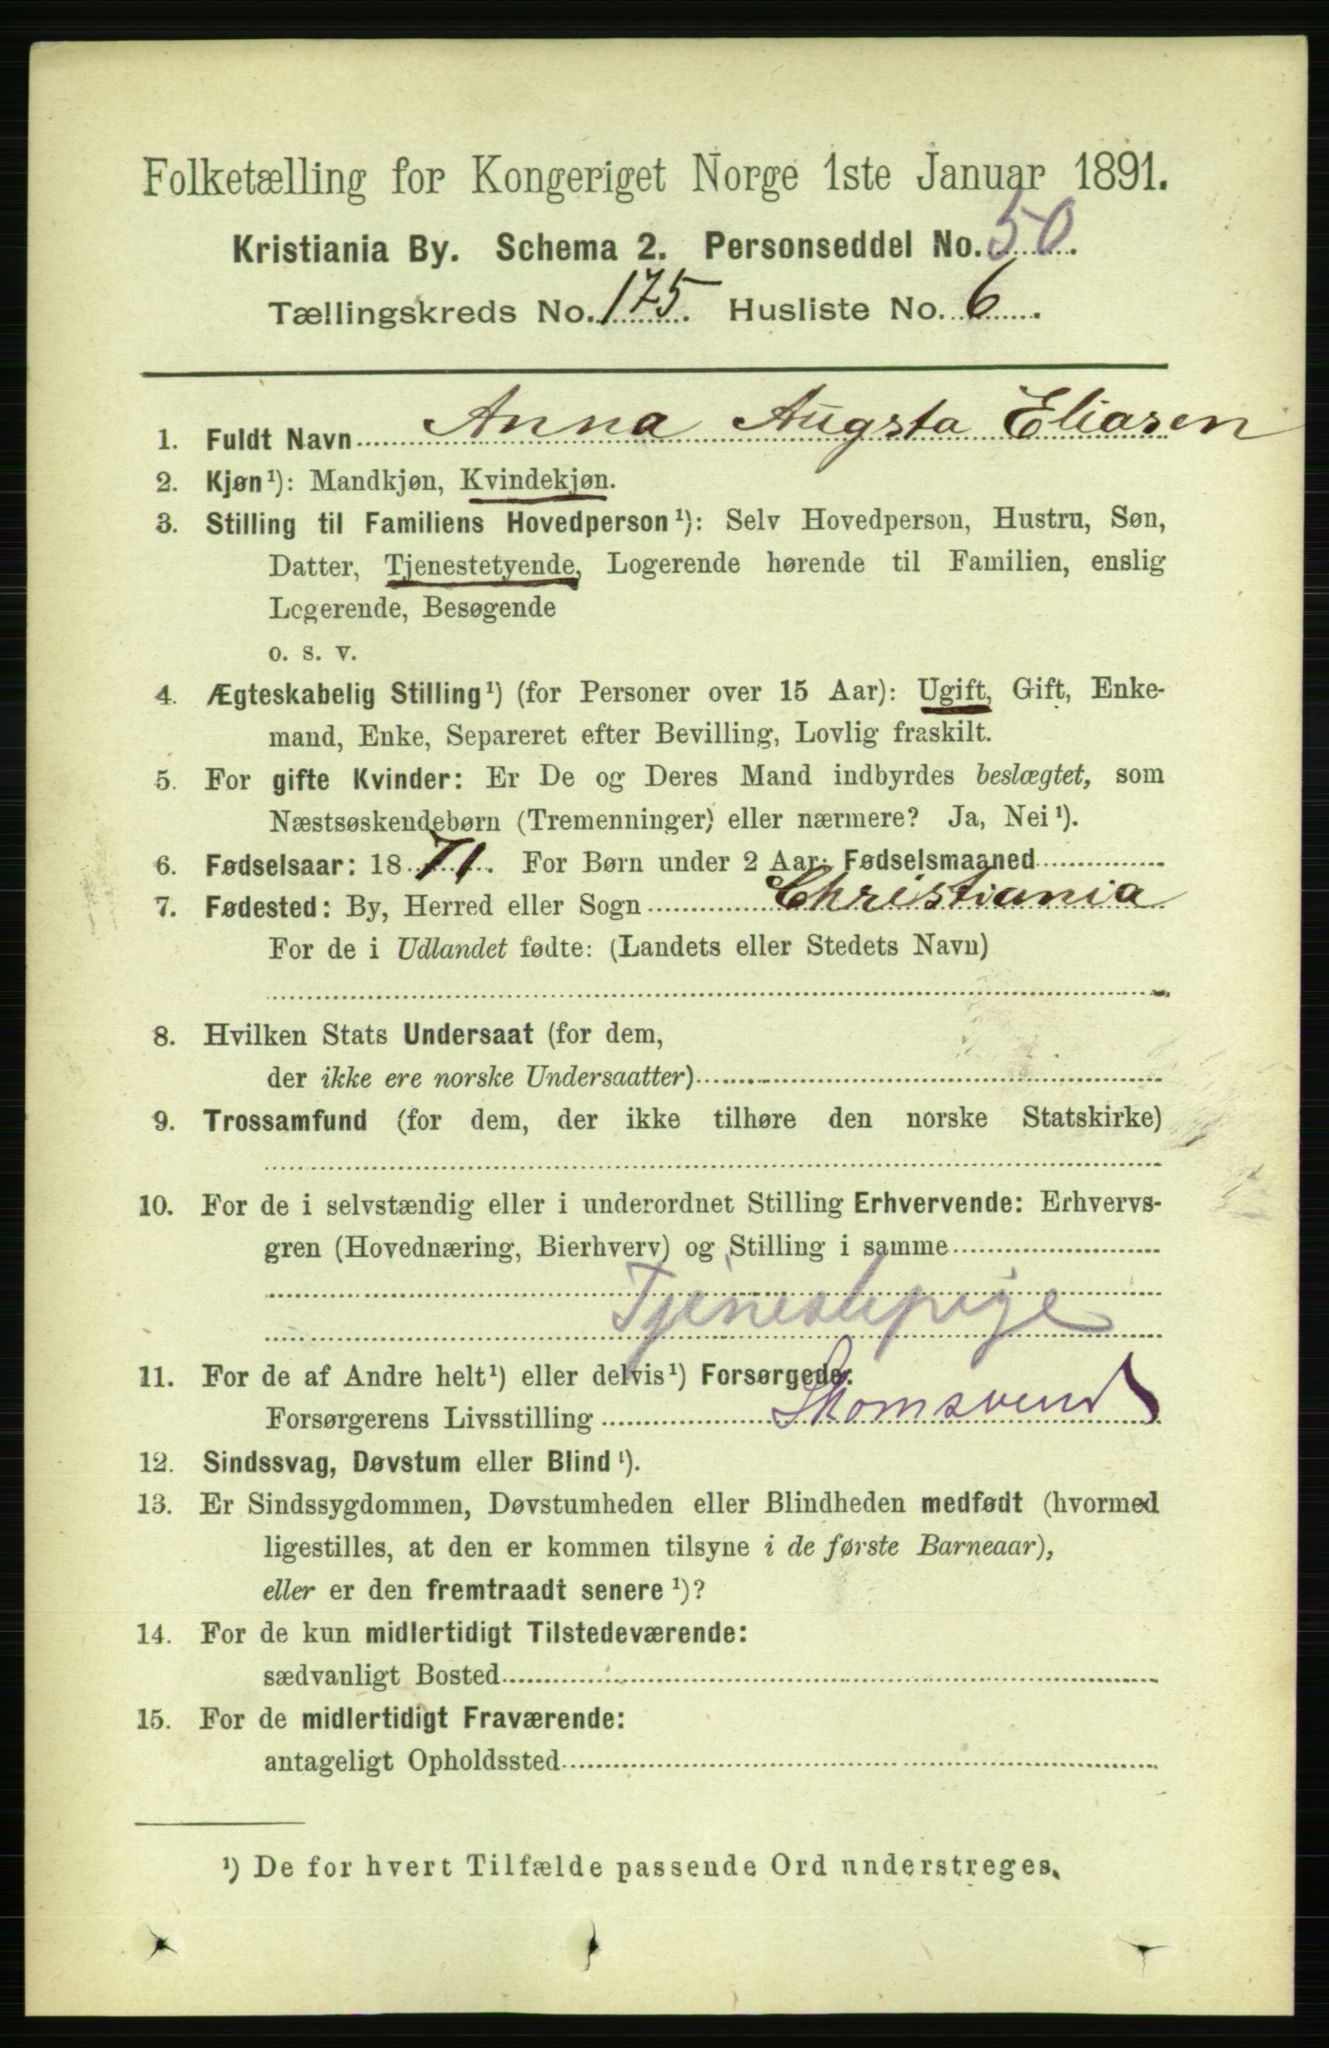 Folketælling for Kongeriget Norge 1ste Januar 1891.
Kristiania By. Schema 2. Personseddel No. 50.
Tællingskreds No. 175. Husliste No. 6.
1. Fuldt Navn Anna Augsta Eliasen
2. Kjøn¹): Mandkjøn, Kvindekjøn.
3. Stilling til Familiens Hovedperson¹): Selv Hovedperson, Hustru, Søn,
Datter, Tjenestetyende, Logerende hørende til Familien, enslig
Logerende, Besøgende
o. s. v.
4. Ægteskabelig Stilling¹) (for Personer over 15 Aar): Ugift, Gift, Enke-
mand, Enke, Separeret efter Bevilling, Lovlig fraskilt.
5. For gifte Kvinder: Er De og Deres Mand indbyrdes beslægtet, som
Næstsøskendebørn (Tremenninger) eller nærmere? Ja, Nei¹).
6. Fødselsaar: 1871. For Børn under 2 Aar: Fødselsmaaned
7. Fødested: By, Herred eller Sogn Christiania
For de i Udlandet fødte: (Landets eller Stedets Navn)
8. Hvilken Stats Undersaat (for dem,
der ikke ere norske Undersaatter)
9. Trossamfund (for dem, der ikke tilhøre den norske Statskirke)
10. For de i selvstændig eller i underordnet Stilling Erhvervende: Erhvervs-
gren (Hovednæring, Bierhverv) og Stilling i samme
Tjenestepige
11. For de af Andre helt¹) eller delvis¹) Forsørgede:
Forsørgerens Livsstilling Skomsvend
12. Sindssvag, Døvstum eller Blind¹).
13. Er Sindssygdommen, Døvstumheden eller Blindheden medfødt (hvormed
ligestilles, at den er kommen tilsyne i de første Barneaar),
eller er den fremtraadt senere¹)?
14. For de kun midlertidigt Tilstedeværende:
sædvanligt Bosted
15. For de midlertidigt Fraværende:
antageligt Opholdssted
¹) De for hvert Tilfælde passende Ord understreges.